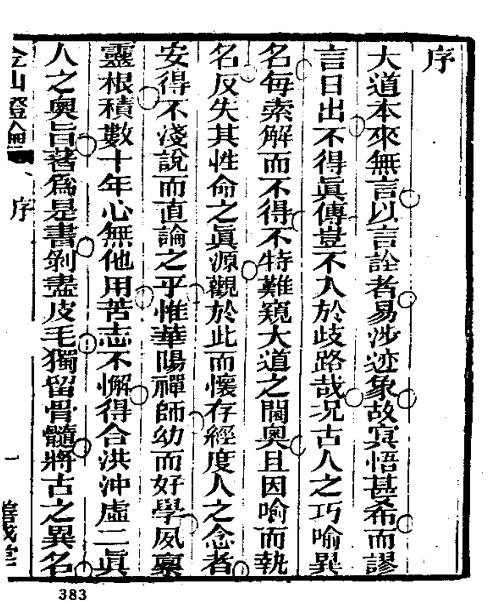 序
大道本來無言以言詮者易涉迹象故冥悟甚希而謬
言日出不得眞傳豈不入於歧路哉况古人之巧喻異
名每索解而不得不特難窺大道之閫奧且因喻而執
名反失其性命之眞源觀於此而懷存經度人之念者
安得不淺說而直論之乎惟華陽禪師幼而好學夙稟
靈根積數十年心無他用苦志不懈得合洪沖虛二眞
人之奧旨著爲是書剝盡皮毛獨留骨髓將古之異名
序
一
383